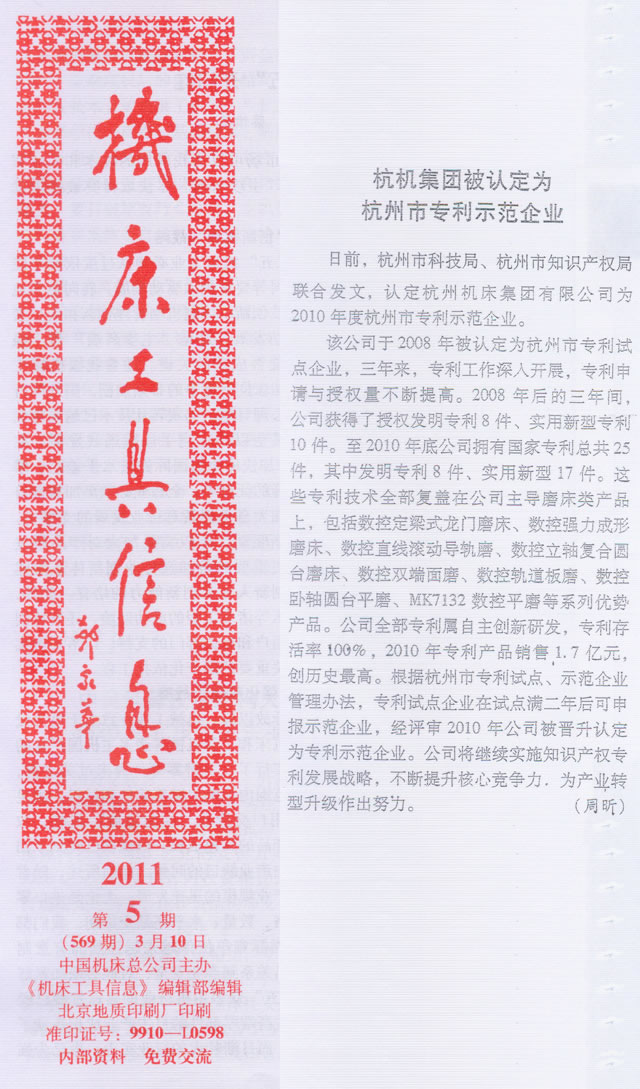 機床工具信息
2011
第 5 期
(569期) 3月10日
中国机床总公司主办
《机床工具信息》编辑部编辑
北京地质印刷厂印刷
准印证号：9910—L0598
内部资料 免费交流
杭机集团被认定为
杭州市专利示范企业
日前，杭州市科技局、杭州市知识产权局
联合发文，认定杭州机床集团有限公司为
2010年度杭州市专利示范企业。
该公司于2008年被认定为杭州市专利试
点企业，三年来，专利工作深入开展，专利申
请与授权量不断提高。2008年后的三年间，
公司获得了授权发明专利8件、实用新型专利
10件。至2010年底公司拥有国家专利总共25
件，其中发明专利8件、实用新型17件。这
些专利技术全部复盖在公司主导磨床类产品
上，包括数控定梁式龙门磨床、数控强力成形
磨床、数控直线滚动导轨磨、数控立轴复合圆
台磨床、数控双端面磨、数控轨道板磨、数控
卧轴圆台平磨、MK7132数控平磨等系列优势
产品。公司全部专利属自主创新研发，专利存
活率100%，2010年专利产品销售1.7亿元，
创历史最高。根据杭州市专利试点、示范企业
管理办法，专利试点企业在试点满二年后可申
报示范企业，经评审2010年公司被晋升认定
为专利示范企业。公司将继续实施知识产权专
利发展战略，不断提升核心竞争力．为产业转
型升级作出努力。 （周昕）